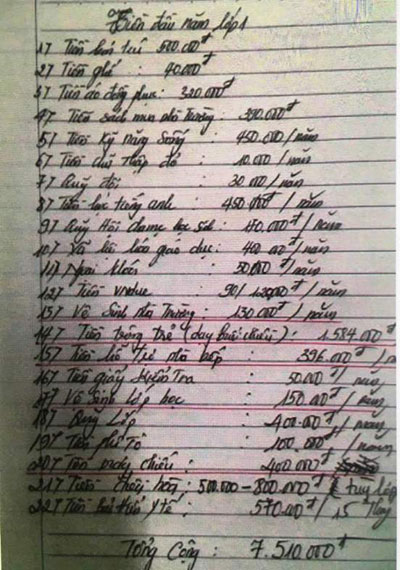 Tiền đầu năm lớp 1
1/ Tiền bán trú 500.000đ
2/ Tiền ghế : 40.000đ
3/ Tiền áo đồng phục: 320.000đ
4/ Tiền sách mua nhà trường:
5/ Tiền Kỹ năng Sống : 450.000/năm
6/ Tiền chữ Thập đỏ : 10.000/năm
7/ Quỹ đội : 30.000/năm
8/ Tiền học tiếng anh : 450.000đ/năm
9/ Quỹ Hội
10/ giáo dục:
11/ : 50.000đ/năm
12/ Tiền : /năm
13/ Vệ Sinh nhà Trường : 130.000đ/năm
14/ Tiền trông trẻ (dạy buổi chiều) : 1.584.000đ
15/ Tiền : 396.000đ/
16/ Tiền giấy Kiểm Tra : 50.000đ/năm
17/ Vệ Sinh Lớp học : 150.000đ/năm
18/ Quỹ Lớp : 400.000đ/năm
19/ Tiền : 100.000đ/năm
20/ Tiền máy chiếu : 400.000đ
21/ Tiền : 500.000 - 800.000đ tuỳ lớp
22/ Tiền bảo hiểm Y tế : 570.000đ/15 tháng
Tổng Cộng : 7.510.000đ